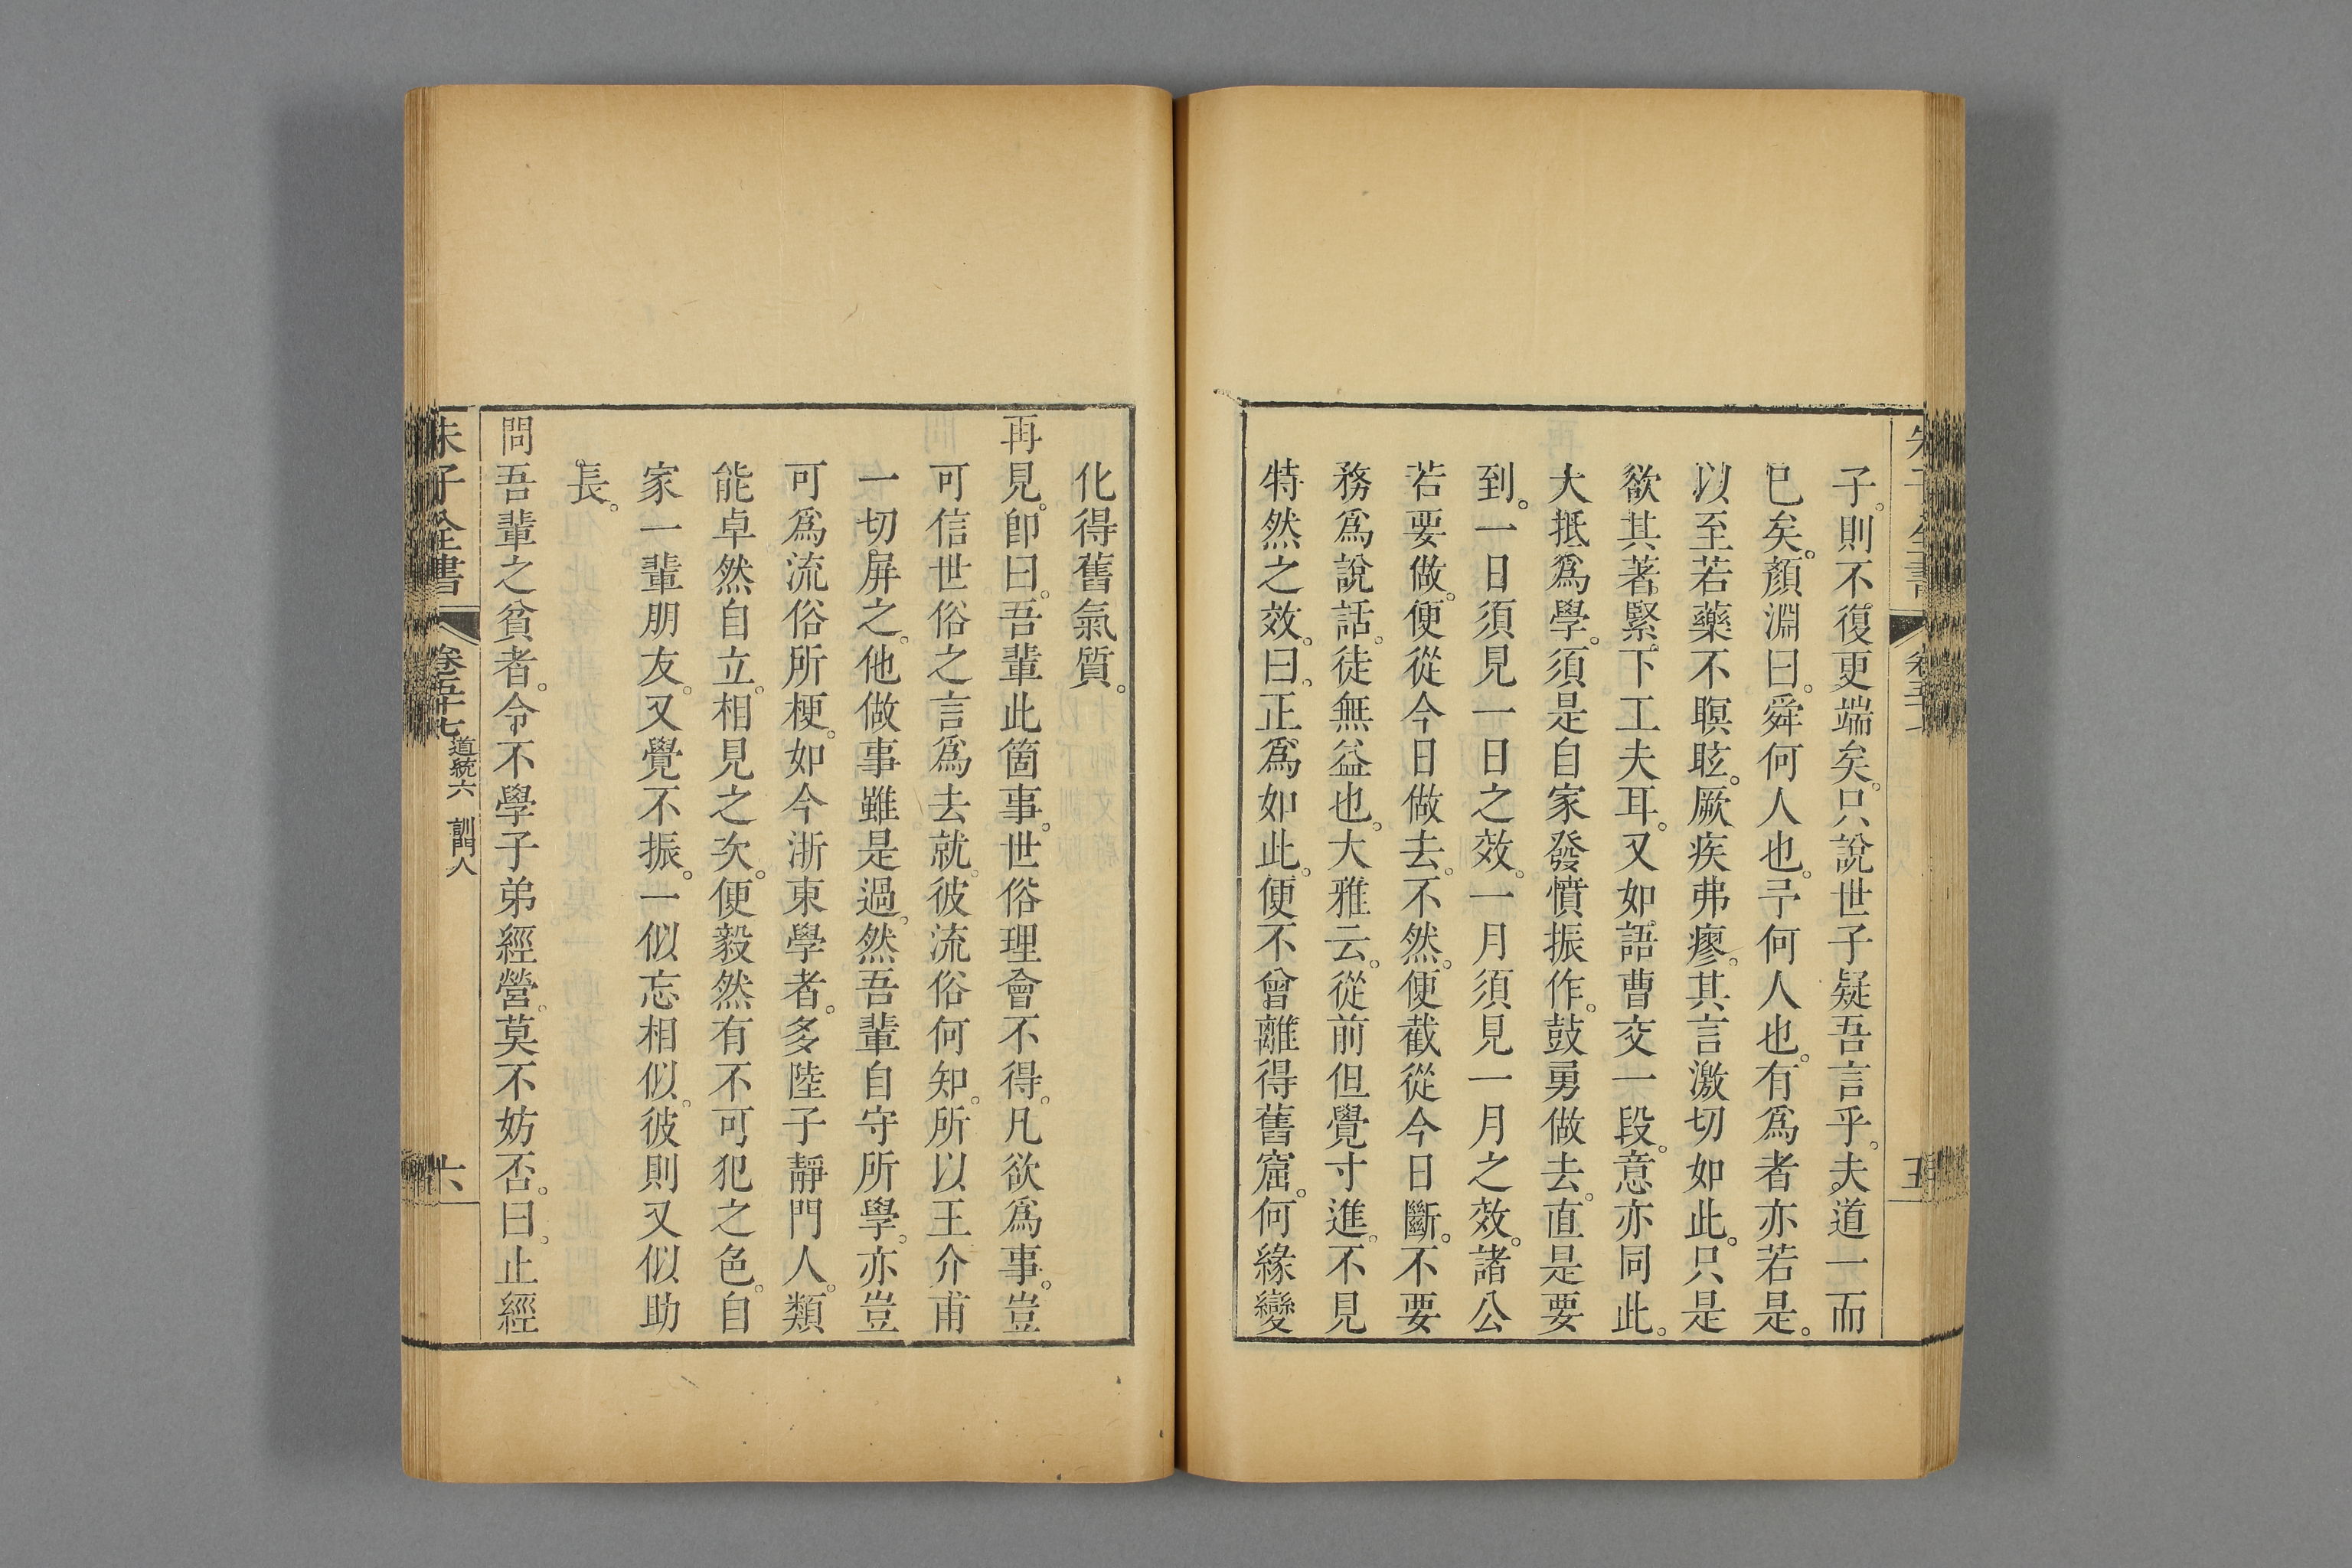 子。則不復更端矣。只說世子疑吾言乎。夫道一而
已矣。顏淵曰。舜何人也。予何人也。有爲者亦若是。
以至若藥不瞑眩。厥疾弗瘳。其言激切如此。只是
欲其著緊。下工夫耳。又如語曹交一段。意亦同此。
大抵爲學。須是自家發憤振作。鼓勇做去。直是要
到。一日須見一日之效。一月須見一月之效。諸公
若要做。便從今日做去。不然。便截從今日斷。不要
務爲說話。徒無益也。大雅云。從前但覺寸進。不見
特然之效。曰。正爲如此。便不曾離得舊窟。何緣變
化得舊氣質。
再見。卽曰。吾輩此箇事。世俗理會不得。凡欲爲事。豈
可信世俗之言爲去就。彼流俗何知。所以王介甫
一切屏之。他做事雖是過。然吾輩自守所學。亦豈
可爲流俗所梗。如今浙東學者。多陸子靜門人。類
能卓然自立。相見之次。便毅然有不可犯之色。自
家一輩朋友。又覺不振。一似忘相似。彼則又似助
長。
問吾輩之貧者。令不學子弟經營。莫不妨否。曰。止經
朱子全書 卷五十七 道統六 訓門人
六